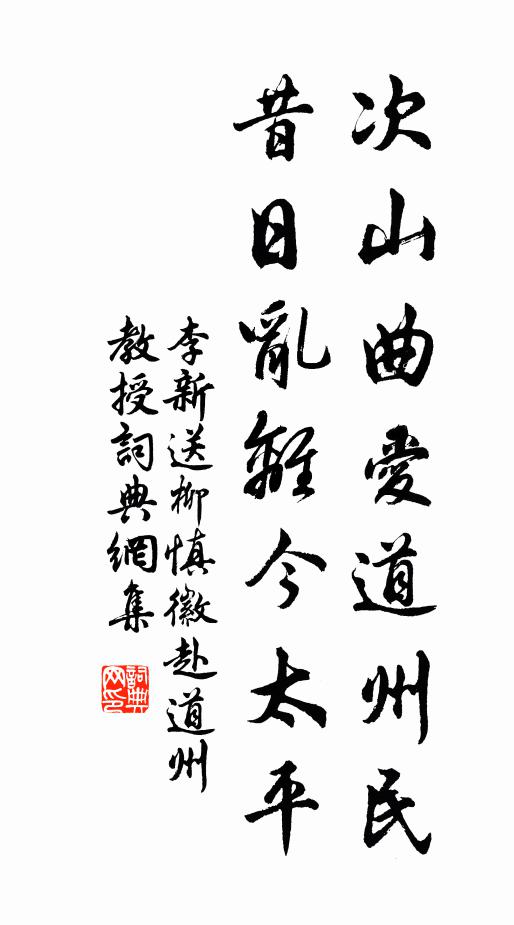 次山曲愛道州民
昔日亂離今太平
李新送柳慎徽赴道州
教授詞典網集
詞典網印